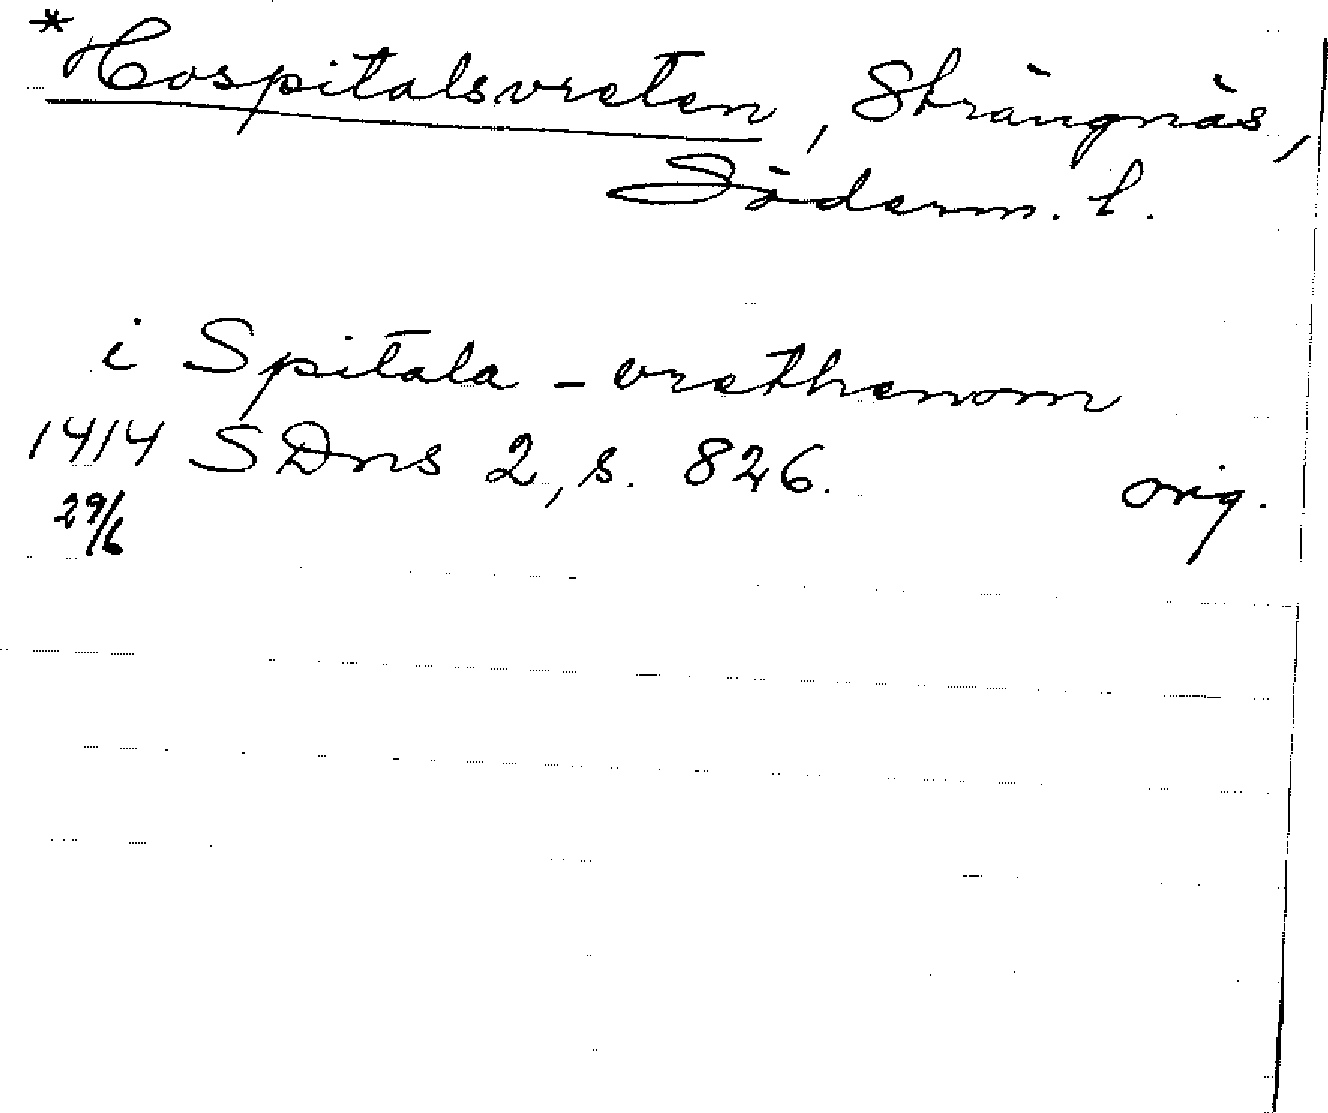 *Hospitalsvreten, Strängnäs,
Söderm. l.
i Spitala-vrethenom
1414 SDns 2, s. 826. orig.
29/6